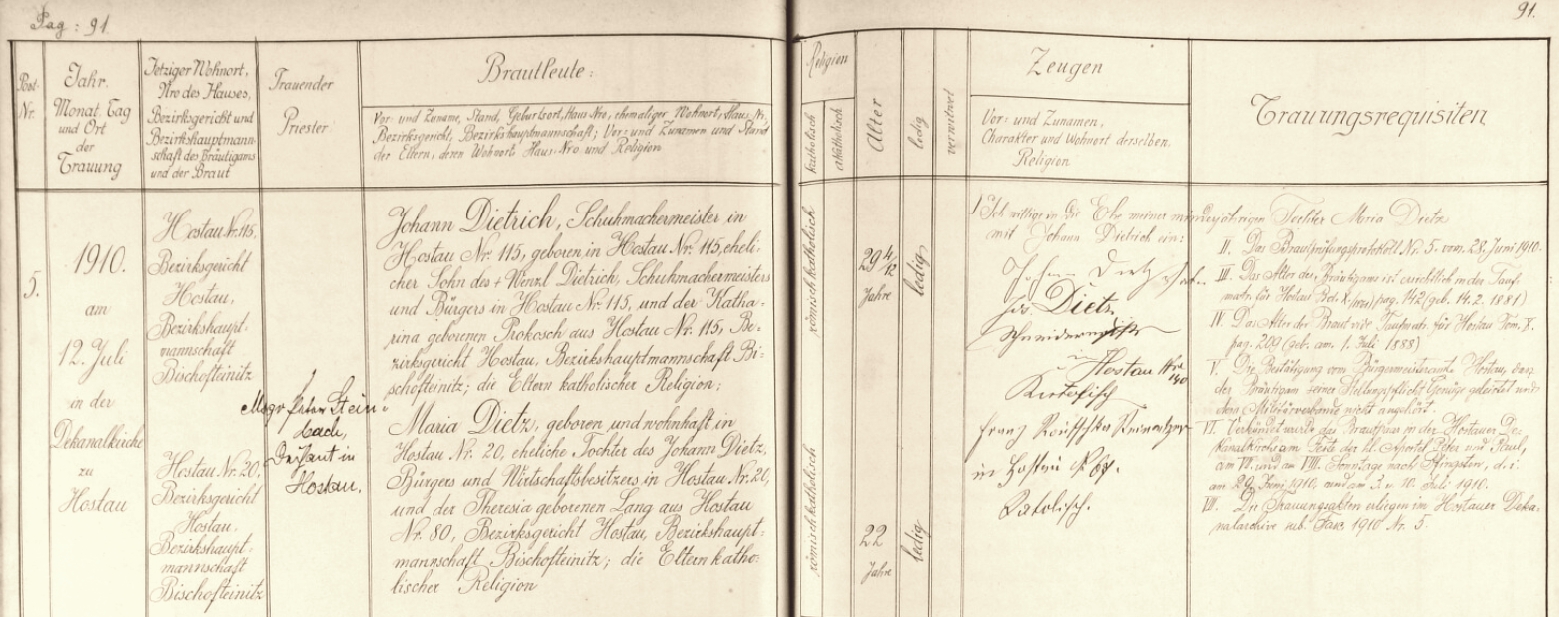 Pag: 91.
91.
Post-Nr.
Jahr.
Monat, Tag
und Ort
der
Trauung
Jetziger Wohnort,
Nro des Hauses,
Bezirksgericht und
Bezirkshauptmann-
schaft des Bräutigams
und der Braut
Trauender
Priester
Brautleute:
Vor- und Zuname, Stand, Geburtsort, Haus Nro, ehemaliger Wohnort, Haus-Nr.
Bezirksgericht, Bezirkshauptmannschaft; Vor- und Zunamen und Stand
der Eltern, deren Wohnort, Haus-Nro und Religion
Religion
katholisch
akatholisch
Alter
ledig
verwitwet
Zeugen
Vor- und Zunamen,
Charakter und Wohnort derselben,
Religion
Trauungsrequisiten
5.
1910.
am
12. Juli
in der
Dekanalkirche
zu
Hostau
Hostau Nr. 115,
Bezirksgericht
Hostau,
Bezirkshaupt-
mannschaft
Bischofteinitz
Hostau Nr. 20,
Bezirksgericht
Hostau,
Bezirkshaupt-
mannschaft
Bischofteinitz
Msgr Peter Stein-
bach,
Dechant in
Hostau.
Johann Dietrich, Schuhmachermeister in
Hostau Nr. 115, geboren in Hostau Nr. 115, eheli-
cher Sohn des + Wenzl Dietrich, Schuhmachermeisters
und Bürgers in Hostau Nr. 115, und der Katha-
rina geborenen Prokosch aus Hostau Nr. 115, Be-
zirksgericht Hostau, Bezirkshauptmannschaft Bi-
schofteinitz; die Eltern katholischer Religion;
Maria Dietz, geboren und wohnhaft in
Hostau Nr. 20, eheliche Tochter des Johann Dietz,
Bürgers und Wirtschaftsbesitzers in Hostau Nr. 20,
und der Theresia geborenen Lang aus Hostau
Nr. 80, Bezirksgericht Hostau, Bezirkshaupt-
mannschaft Bischofteinitz; die Eltern katho-
lischer Religion
römisch katholisch
29 4/12
Jahre
ledig
römisch katholisch
22
Jahre
ledig
I Ich willige in die Ehe meiner minderjährigen Tochter Maria Dietz
mit Johann Dietrich ein:
Johann Dietz
Jos. Dietz
Schneidermeister
in Hostau Nro 140
Katholisch
Franz
in Hostau
Katolisch.
II. Das Brautprüfungsprotokoll Nr. 5. vom 28. Juni 1910.
III. Das Alter des Bräutigams ist ersichtlich in der Tauf-
matr. für Hostau pag. 142 (geb. 14. 2. 1881)
IV. Das Alter der Braut vide Taufmatr. für Hostau Tom. X.
pag. 209 (geb. am 1. Juli 1888)
V. Die Bestätigung vom Bürgermeisteramte Hostau, dass
der Bräutigam seiner Stellungspflicht Genüge geleistet und
dem Militärverbande nicht angehört.
VI. Verkündet wurde das Brautpaar in der Hostauer De-
kanalkirche am Feste der hl. Apostel Peter und Paul,
am VII. und am VIII. Sonntage nach Pfingsten, d. i.
am 29. Juni 1910, und am 3. u. 10. Juli 1910.
VII. Die Trauungsakten erliegen im Hostauer Deka-
nalarchive sub. Fasz 1910 Nr. 5.